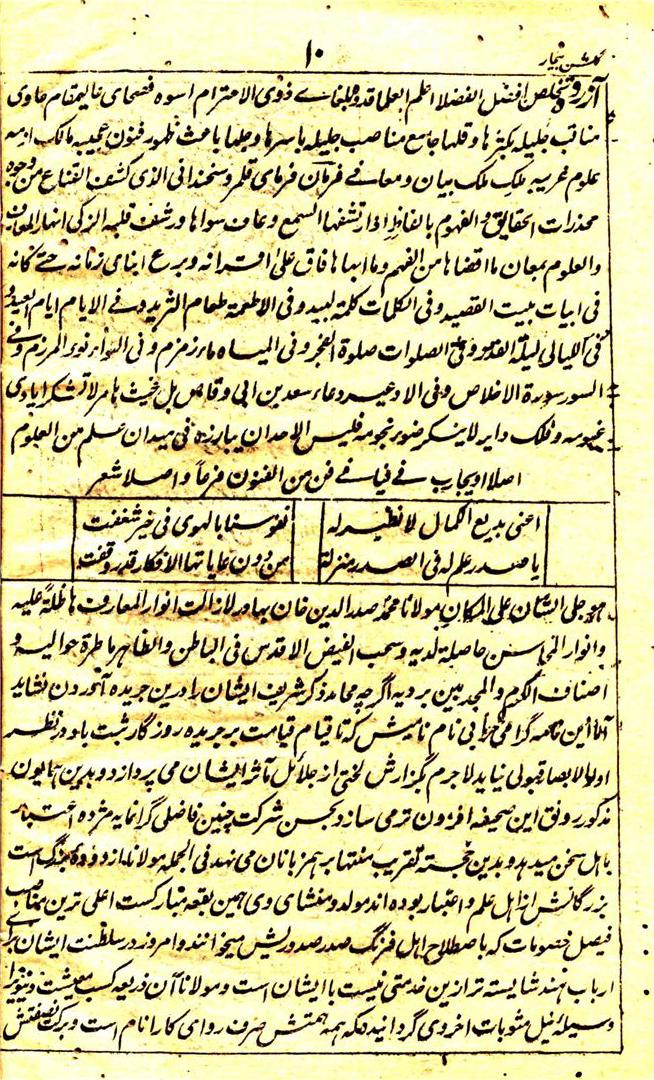 گلشن بیخار
۱۰
آزردہ تخلص افضل الفضلا اعلم العلما قدوہ بلغاے ذوی الاحترام اسوہ فصحای عالیمقام حاوی
مناقب جلیلہ بکثرہا وقلہا جامع مناصب جلیلہ باسرہا وجلہا باعث ظہور فنون عجیبہ مالک ازمہ
علوم غریبہ ملک ملک بیان و معانے فرمان فرمای قلمرو سخندانی الذی کشف القناع من وجوہ
مخدرات الحقایق والفہوم بالفاظ اذا رتشفہا السمع وعاف سواہا ورشف قلبہ الزکی انہار المعارف
والعلوم بمعان مااقضاہا من الفہم وماابہاہا فاق علی اقرانہ وبرع ابنای زمانہ حتے کانہ
فی ابیات بیت القصید وفی الکلمات کلمة لبید وفی الاطعمة طعام الثرید وفے الایام ایام العید و
فی اللیالی لیلة القدر وفی الصلوات صلوة الفجر وفی المیاہ ماء زمزم وفی النواء نوء المرزم وفے
السور سورة الاخلاص وفی الادعیہ دعاء سعد بن ابی وقاص بل غیث ہامر لا تشکر ایادی
غیوبہ و فلک دایر لاینکر ضوء نجومہ فلیس لاحد ان یبارزہ فی میدان علم من العلوم
اصلا او یجاریہ فے فیافے فن من الفنون فرعاً و اصلا شعر
اعنی بدیع الکمال لا نظیر لہ نفوسنا بالہوی فی خیر شغفت
یا صدر علم لہ فی الصدر منزلة من دون غایاتہا الافکار قد وقفت
ہو جلی الشان علی المکان مولانا محمد صدرالدین خان بہادر لازالت انوار المعارف ہاطلة علیہ
وانوار المحاسن حاصلة لدیہ وسحب الفیض الاقدس فی الباطن والظاہر ماطرة حوالیہ و
اصناف الکرم والمجد بین بردیہ اگرچہ محامد ذکر شریف ایشان را درین جریدہ آوردن نشاید
اما این نامہ گرامی را بی نام نامیش کہ تا قیام قیامت بر جریدہ روزگار ثبت باد در نظر
اولوالابصار قبولی نیاید لاجرم بگزارش لختی از جلائل مآثر ایشان می پردازد و بدین ہمایون
مذکور رونق این صحیفہ افزون تر می سازد بحسن شرکت چنین فاضلی گرانمایہ مژدہ اعتبار
باہل سخن میدہد و بدین خجستہ تقریب منتہا بر ہمزبانان می نہد فی الجملہ مولانا از دودہ بزرگ است
بزرگانش از اہل علم و اعتبار بودہ اند مولد و منشای وی ہمین بقعہ مبارکست اعلی ترین مناصب
فیصل خصومات کہ باصطلاح اہل فرنگ صدر صدوریش میخوانند و امروز در سلطنت ایشان برای
ارباب ہند شایستہ تر ازین خدمتی نیست با ایشان است و مولانا آن ذریعہ کسب معیشت دنیوی را
وسیلہ نیل مثوبات اخروی گردانید کہ ہمہ ہمتش صرف روای کار انام است و برکت نصفتش